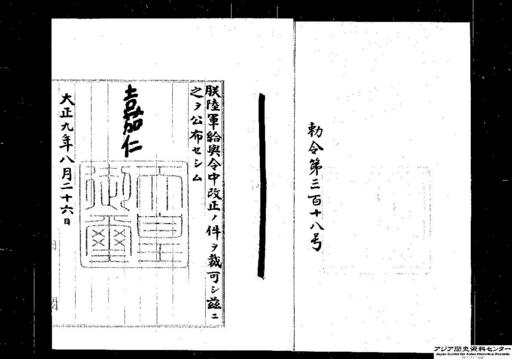 勅令第三百十八号
朕陸軍給與令中改正ノ件ヲ裁可シ茲ニ
之ヲ公布セシム
嘉仁
天皇
御璽
大正九年八月二十六日
アジア歴史資料センター
Japan Center for Asian Historical Records